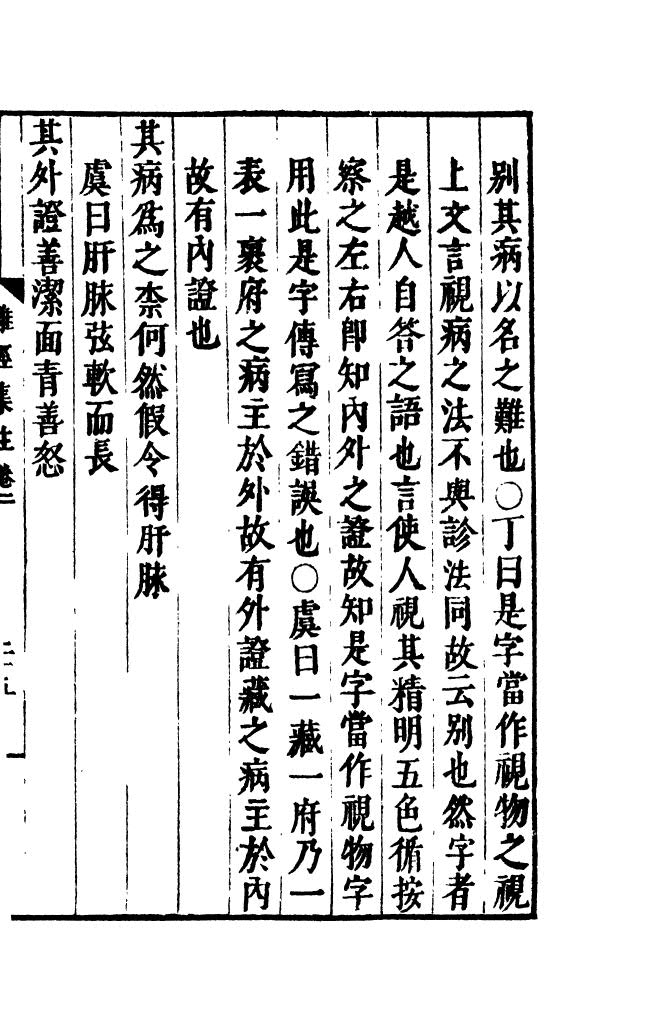 别其病以名之難也○丁曰是字當作視物之視
上文言視病之法不與診法同故云别也然字者
是越人自答之語也言使人視其精明五色循按
察之左右卽知內外之證故知是字當作視物字
用此是字傳寫之錯誤也○虞曰一藏一府乃一
表一裏府之病主於外故有外證藏之病主於內
故有內證也
其病爲之柰何然假令得肝脉
虞曰肝脉弦軟而長
其外證善潔面青善怒
難經集註卷二